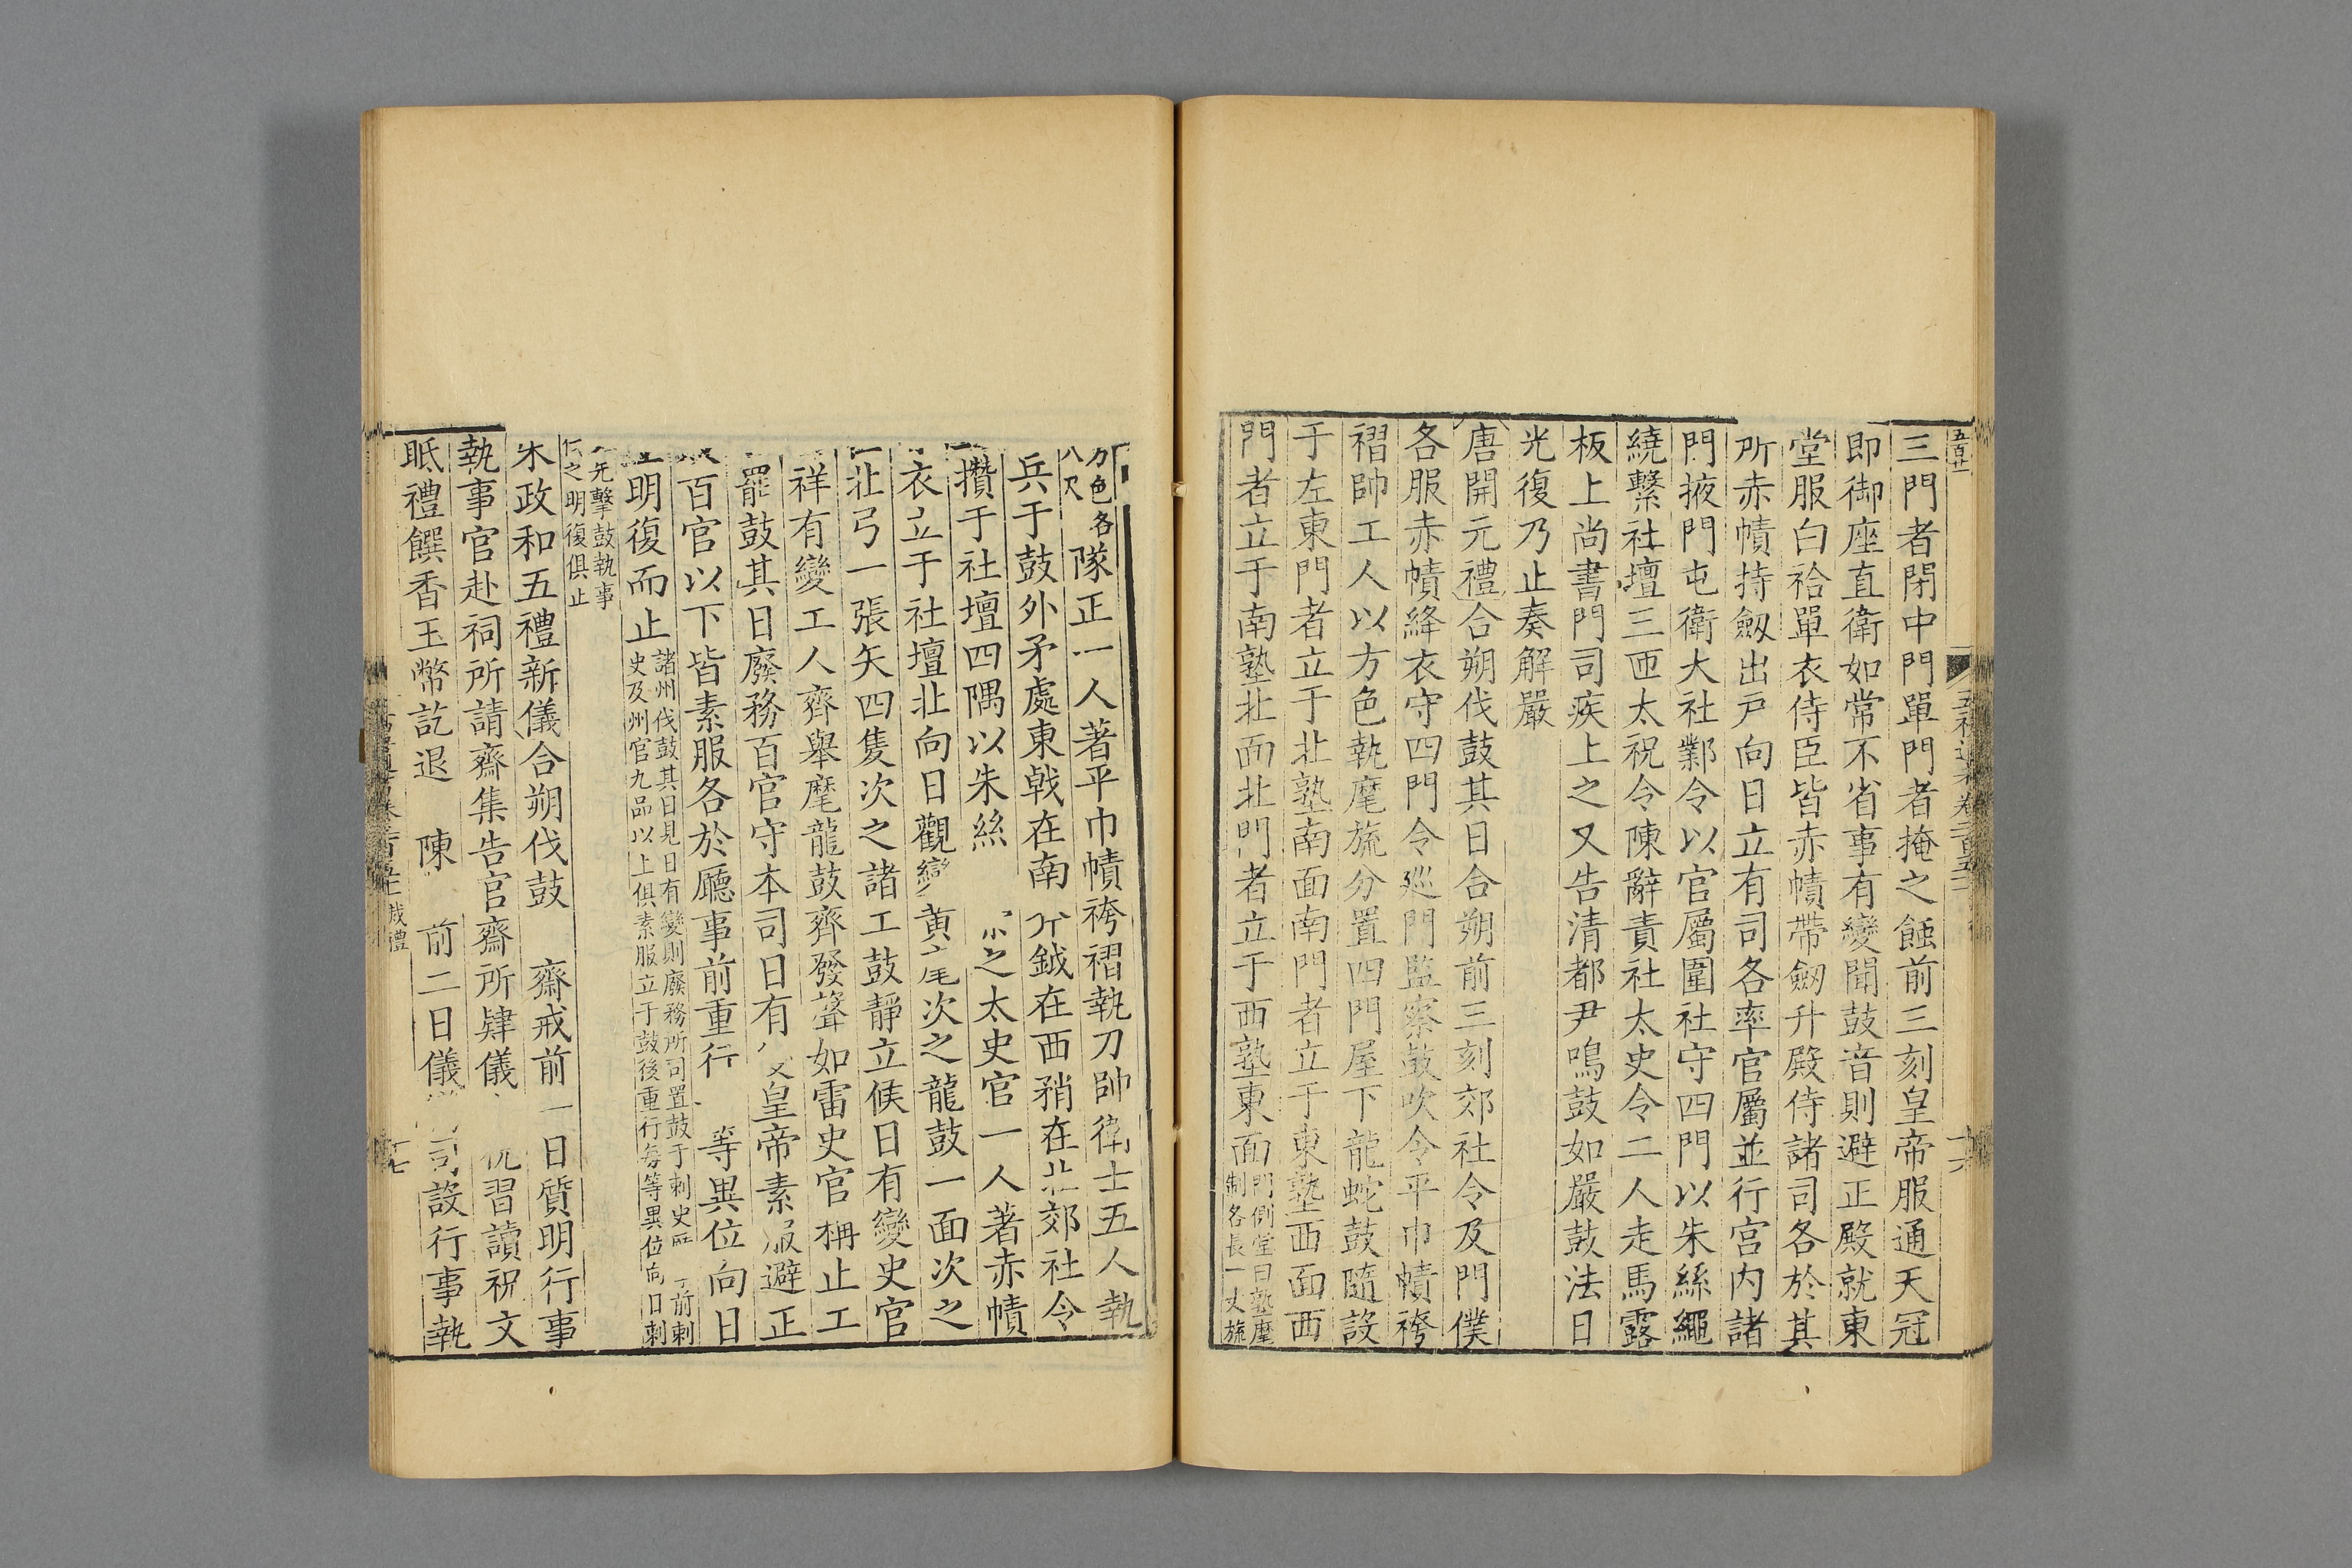 三門者閉中門單門者掩之蝕前三刻皇帝服通天冠
即御座直衛如常不省事有變聞鼓音則避正殿就東
堂服白袷單衣侍臣皆赤幘帶劔升殿侍諸司各於其
所赤幘持劔出戸向日立有司各率官屬並行宫内諸
門掖門屯衛大社鄴令以官屬圍社守四門以朱絲繩
繞繫社壇三匝太祝令陳辭責社太史令二人走馬露
板上尚書門司疾上之又告清都尹鳴鼓如嚴鼓法日
光復乃止奏解嚴
唐開元禮合朔伐鼓其日合朔前三刻郊社令及門僕
各服赤幘絳衣守四門令廵門監察鼓吹令平巾幘袴
褶帥工人以方色執麾旒分置四門屋下龍蛇鼓隨設
于左東門者立于北塾南面南門者立于東塾西面西
門者立于南塾北面北門者立于西塾東面門側堂曰塾麾
制各長一丈旒
方色各
八尺隊正一人著平巾幘袴褶執刀帥衛士五人執
兵于鼓外矛處東戟在南斧鉞在西矟在北郊社令
攢于社壇四隅以朱絲之太史官一人著赤幘
衣立于社壇北向日觀變黄麾次之龍鼓一面次之
北弓一張矢四隻次之諸工鼓靜立候日有變史官
祥有變工人齊舉麾龍鼓齊發聲如雷史官稱止工
罷鼓其日廢務百官守本司日有變皇帝素服避正
百官以下皆素服各於廳事前重行等異位向日
明復而止諸州伐鼓其日見日有變則廢務所司置鼓于刺史前刺
史及州官九品以上俱素服立于鼓後重行每等異位向日刺
史先擊鼓執事
之明復俱止
宋政和五禮新儀合朔伐鼓　齋戒前一日質明行事
執事官赴祠所請齋集告官齋所肄儀祝習讀祝文
眡禮饌香玉幣訖退　陳　前二日儀司設行事執
十七